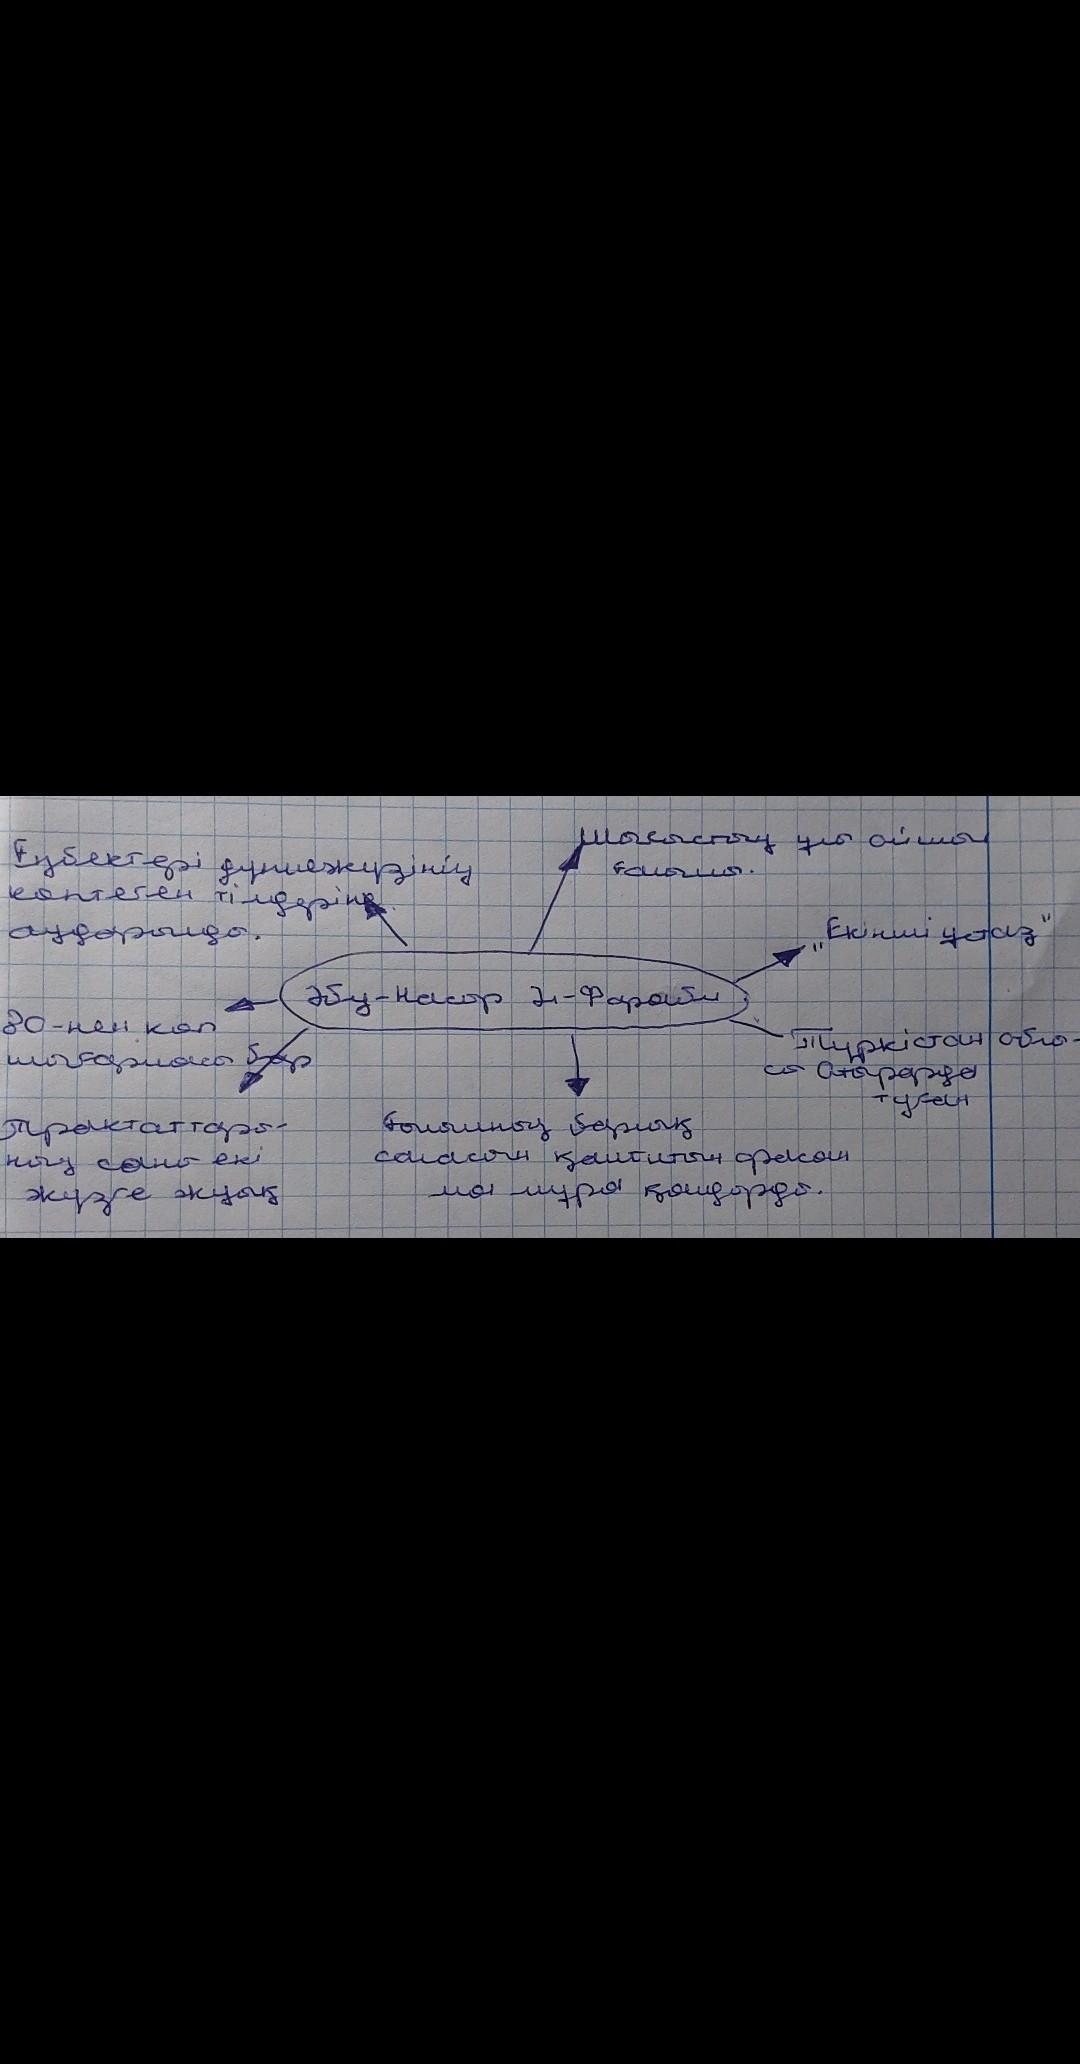 Еңбектері дүниежүзінің
көптеген тілдеріне
аударылды.
Шығыстың ұлы ойшыл
ғалымы.
„Екінші ұстаз"
Әбу-Насыр Әл-Фараби
80-нен көп
шығармасы бар
Түркістан облы-
сы Отырарда
туған
Трактаттары-
ның саны екі
жүзге жуық
Ғылымның барлық
саласын қамтитын
мол мұра қалдырды.